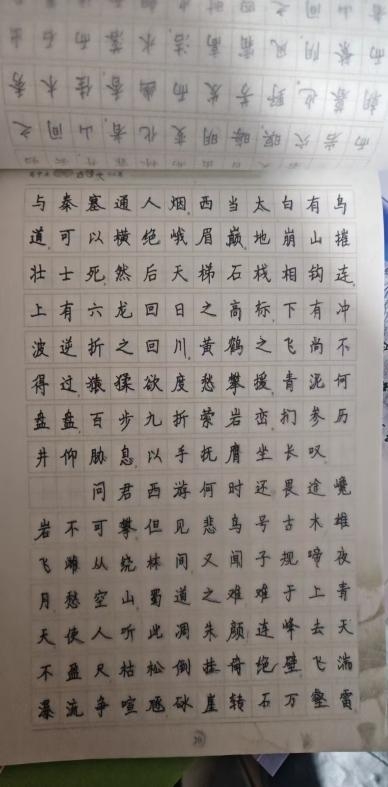 而岩穴暝,晦明变化者,山间之
朝暮也.野芳发而幽香,佳木秀
而繁阴,风霜高洁,水落而石出
与秦塞通人烟.西当太白有鸟
道,可以横绝峨眉巅.地崩山摧
壮士死,然后天梯石栈相钩连.
上有六龙回日之高标,下有冲
波逆折之回川.黄鹤之飞尚不
得过,猿猱欲度愁攀援.青泥何
盘盘,百步九折萦岩峦.扪参历
井仰胁息,以手抚膺坐长叹.
问君西游何时还畏途巉
岩不可攀.但见悲鸟号古木雄
飞雌从绕林间.又闻子规啼夜
月愁空山.蜀道之难难于上青
天使人听此凋朱颜.连峰去天
不盈尺枯松倒挂倚绝壁.飞湍
瀑流争喧豗砯崖转石万壑雷